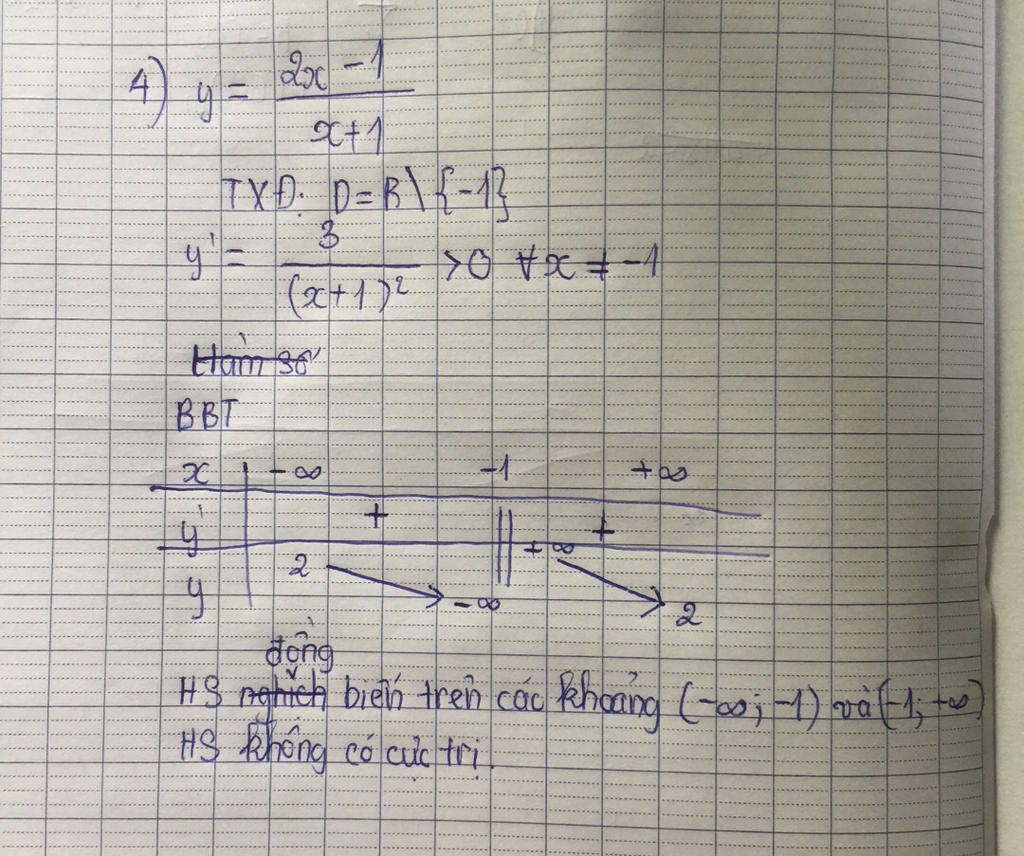 4) y = \frac{2x - 1}{x+1}
TXĐ: D = R \ {-1}
y' = \frac{3}{(x+1)^2} > 0 ∀x ≠ -1
Hàm số
BBT
x | -∞ -1 +∞
y' | + || +
y | 2 → -∞ || +∞ → 2
đồng
HS nghịch biến trên các khoảng (-∞; -1) và (-1; +∞)
HS không có cực trị.